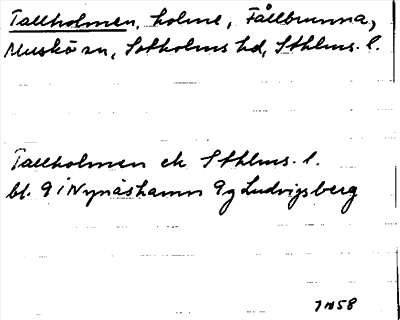 Tallholmen, holme, Fållbrunna,
Muskö sn, Sotholms hd, Sthlms. l.
Tallholmen ek Sthlms. l.
bl. 9 i Nynäshamn 9g Ludvigsberg
7 N 58